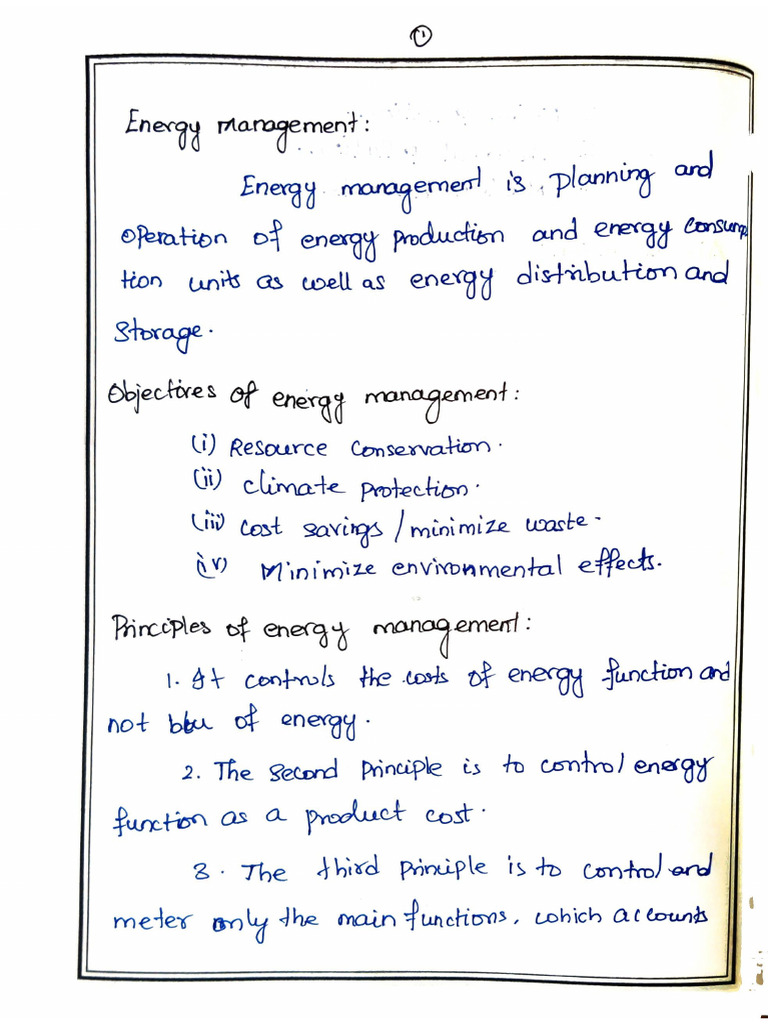 1
Energy management:
Energy management is planning and
operation of energy production and energy consump
tion units as well as energy distribution and
Storage.
Objectives of energy management:
(i) Resource conservation.
(ii) climate protection.
(iii) cost savings / minimize waste.
(iv) Minimize environmental effects.
Principles of energy management:
1. It controls the costs of energy function and
not of energy.
2. The second principle is to control energy
function as a product cost.
3. The third principle is to control and
meter only the main functions, which accounts